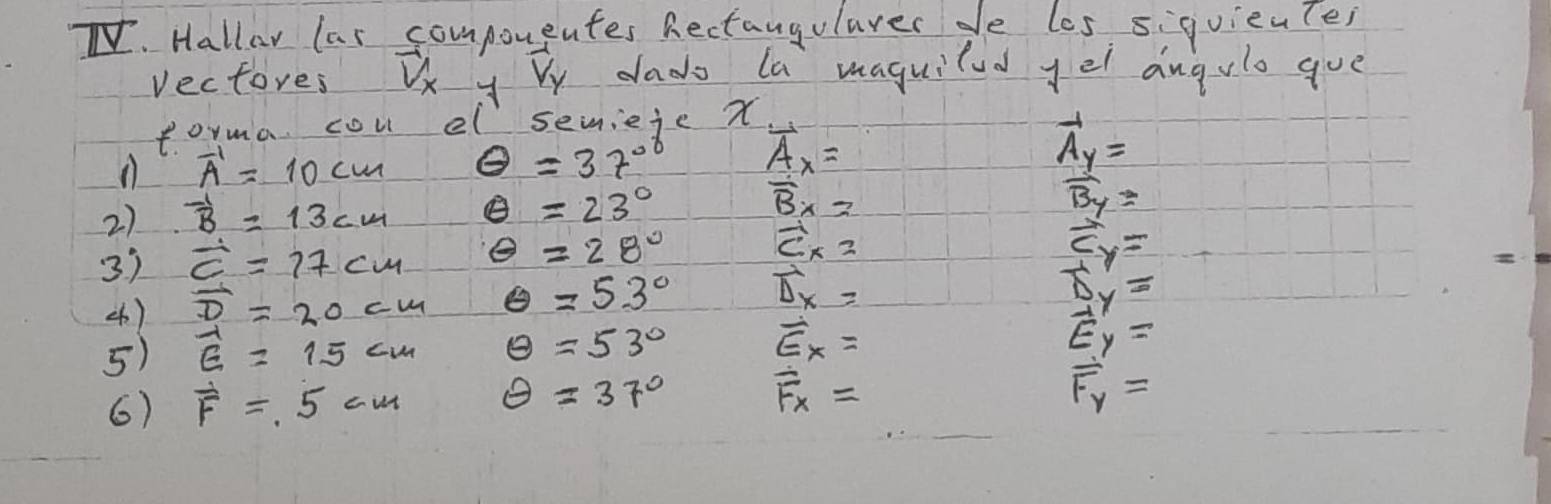 IV. Hallar las componentes Rectangulares de los siguientes
vectores V⃗x y V⃗y dado la magnitud y el ángulo que
forma con el semieje x.
1) A⃗ = 10 cm θ = 37° A⃗x = A⃗y =
2) B⃗ = 13 cm θ = 23° B⃗x = B⃗y =
3) C⃗ = 17 cm θ = 28° C⃗x = C⃗y =
4) D⃗ = 20 cm θ = 53° D⃗x = D⃗y =
5) E⃗ = 15 cm θ = 53° E⃗x = E⃗y =
6) F⃗ = 5 cm θ = 37° F⃗x = F⃗y =